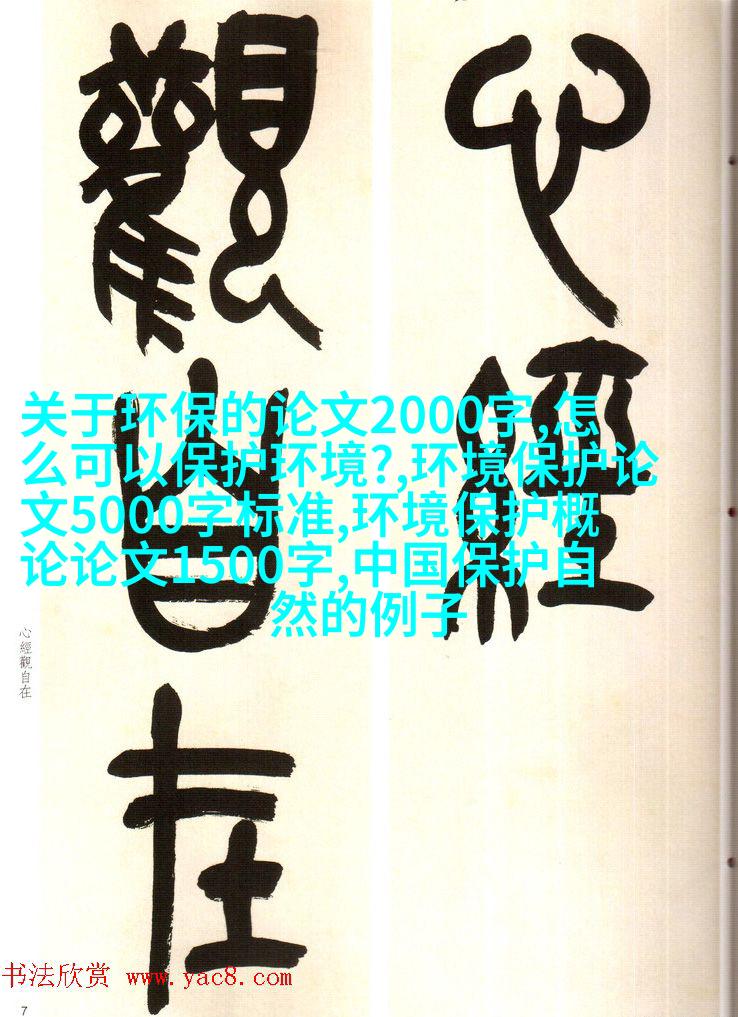 心經
觀自在
关于环保的论文2000字,怎
么可以保护环境?,环境保护论
文5000字标准,环境保护概
论论文1500字,中国保护自
然的例子
心經觀自在
书法欣赏 www.yac8.com
7